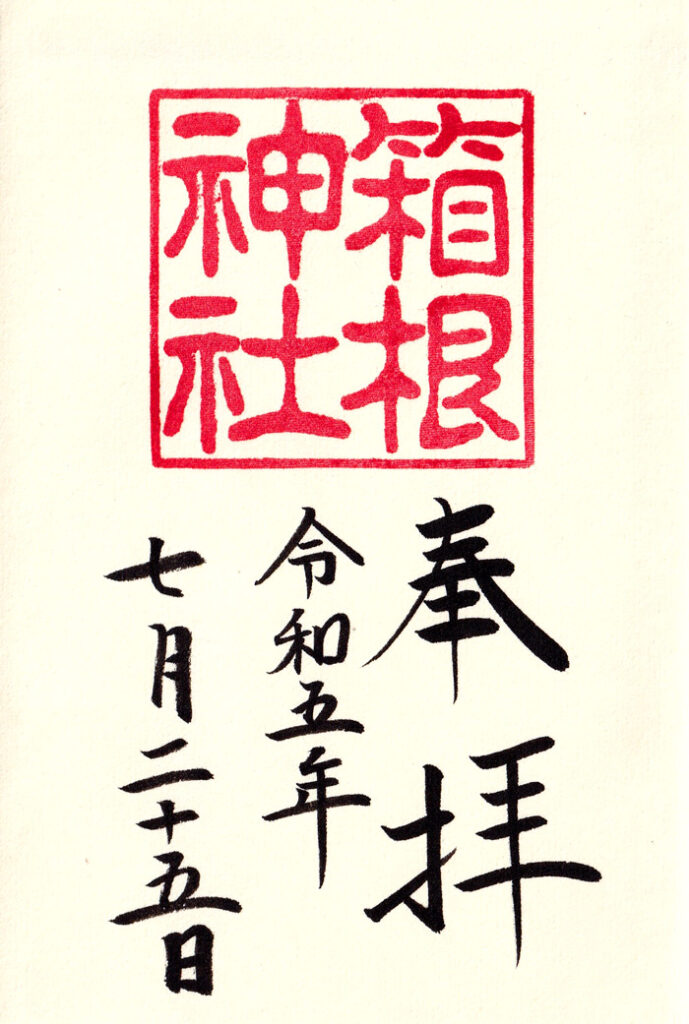 箱根
神社
奉拝
令和五年
七月二十五日